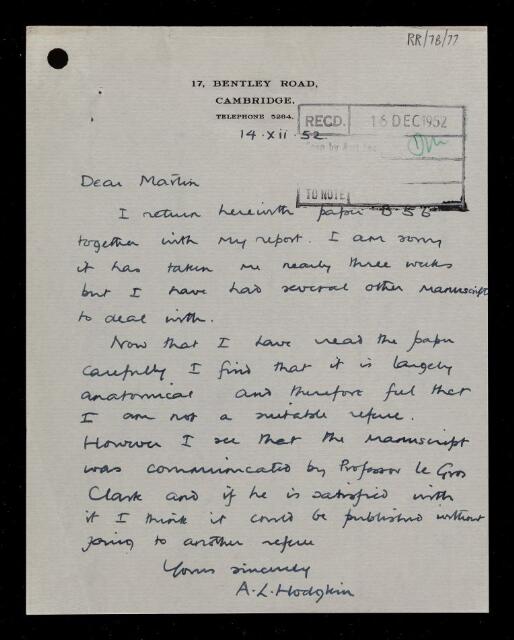 RR/78/77
17, BENTLEY ROAD,
CAMBRIDGE.
TELEPHONE 5284.
14·XII·52
RECD. 16 DEC 1952
TO NOTE
Dear Martin
I return herewith paper B 56
together with my report. I am sorry
it has taken me nearly three weeks
but I have had several other manuscripts
to deal with.
Now that I have read the paper
carefully I find that it is largely
anatomical and therefore feel that
I am not a suitable referee.
However I see that the manuscript
was communicated by Professor le Gros
Clark and if he is satisfied with
it I think it could be published without
going to another referee
Yours sincerely
A.L. Hodgkin